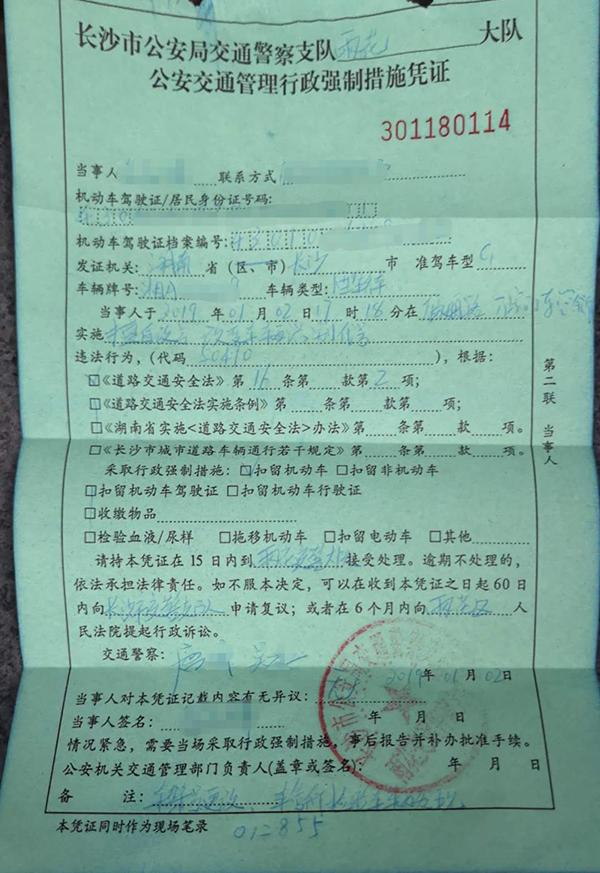 长沙市公安局交通警察支队雨花大队
公安交通管理行政强制措施凭证
301180114
当事人 联系方式
机动车驾驶证/居民身份证号码:
430
机动车驾驶证档案编号:43010
发证机关:湖南省(区、市)长沙市 准驾车型C1
车辆牌号:湘A 车辆类型:
当事人于2019年01月02日17时18分在
实施
违法行为,(代码50410),根据:
□《道路交通安全法》第16条第款第2项;
□《道路交通安全法实施条例》第条第款第项;
□《湖南省实施<道路交通安全法>办法》第条第款项。
□《长沙市城市道路车辆通行若干规定》第条第款第项。
采取行政强制措施:□扣留机动车□扣留非机动车
□扣留机动车驾驶证 □扣留机动车行驶证
□收缴物品
□检验血液/尿样 □拖移机动车 □扣留电动车 □其他
请持本凭证在15日内到接受处理。逾期不处理的,
依法承担法律责任。如不服本决定,可以在收到本凭证之日起60日
内向申请复议;或者在6个月内向雨花区人
民法院提起行政诉讼。
交通警察:
2019年01月02日
当事人对本凭证记载内容有无异议:
当事人签名: 年 月 日
情况紧急,需要当场采取行政强制措施,事后报告并补办批准手续。
公安机关交通管理部门负责人(盖章或签名): 年 月 日
备 注:
本凭证同时作为现场笔录 012855
第二联 当事人